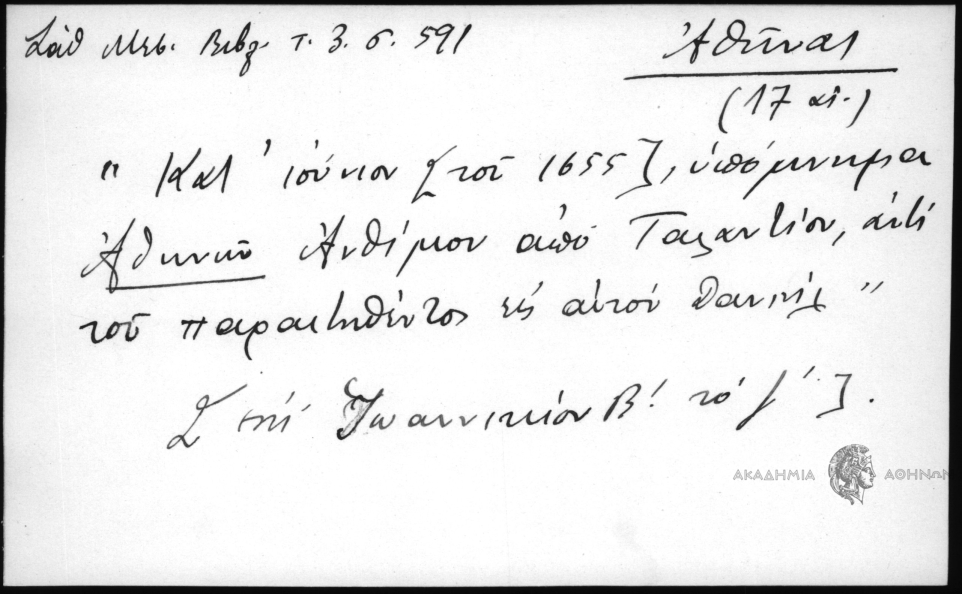 Σάθ Μεσ. Βιβλ. τ. 3. σ. 591
Ἀθῆναι
(17 αἰ.)
" Κατ' ἰούνιον [τοῦ 1655], ὑπόμνημα
Ἀθηνῶν Ἀνθίμου ἀπὸ Ταλαντίου, ἀντὶ
τοῦ παραιτηθέντος εἰς αὐτὸν Δανιὴλ "
[ ἐπὶ Ἰωαννικίου Β! τὸ γ' ].
ΑΚΑΔΗΜΙΑ ΑΘΗΝΩΝ